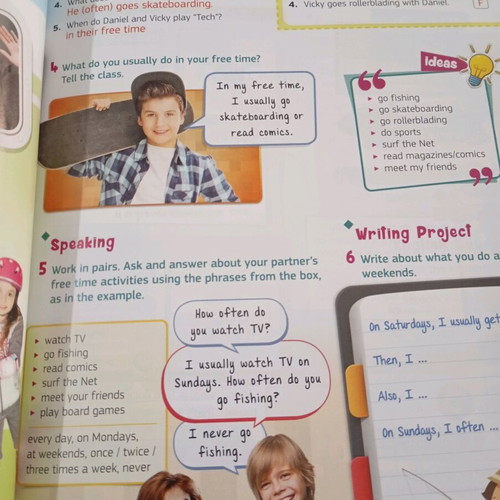 4. What
He (often) goes skateboarding.
5. When do Daniel and Vicky play "Tech"?
in their free time
4. Vicky goes rollerblading with Daniel.
F
4 What do you usually do in your free time?
Tell the class.
In my free time,
I usually go
skateboarding or
read comics.
Ideas
go fishing
go skateboarding
go rollerblading
do sports
surf the Net
read magazines/comics
meet my friends
Speaking
5 Work in pairs. Ask and answer about your partner's
free time activities using the phrases from the box,
as in the example.
watch TV
go fishing
read comics
surf the Net
meet your friends
play board games
every day, on Mondays,
at weekends, once / twice /
three times a week, never
How often do
you watch TV?
I usually watch TV on
Sundays. How often do you
go fishing?
I never go
fishing.
Writing Project
6 Write about what you do a
weekends.
On Saturdays, I usually get
Then, I ...
Also, I ...
On Sundays, I often ...